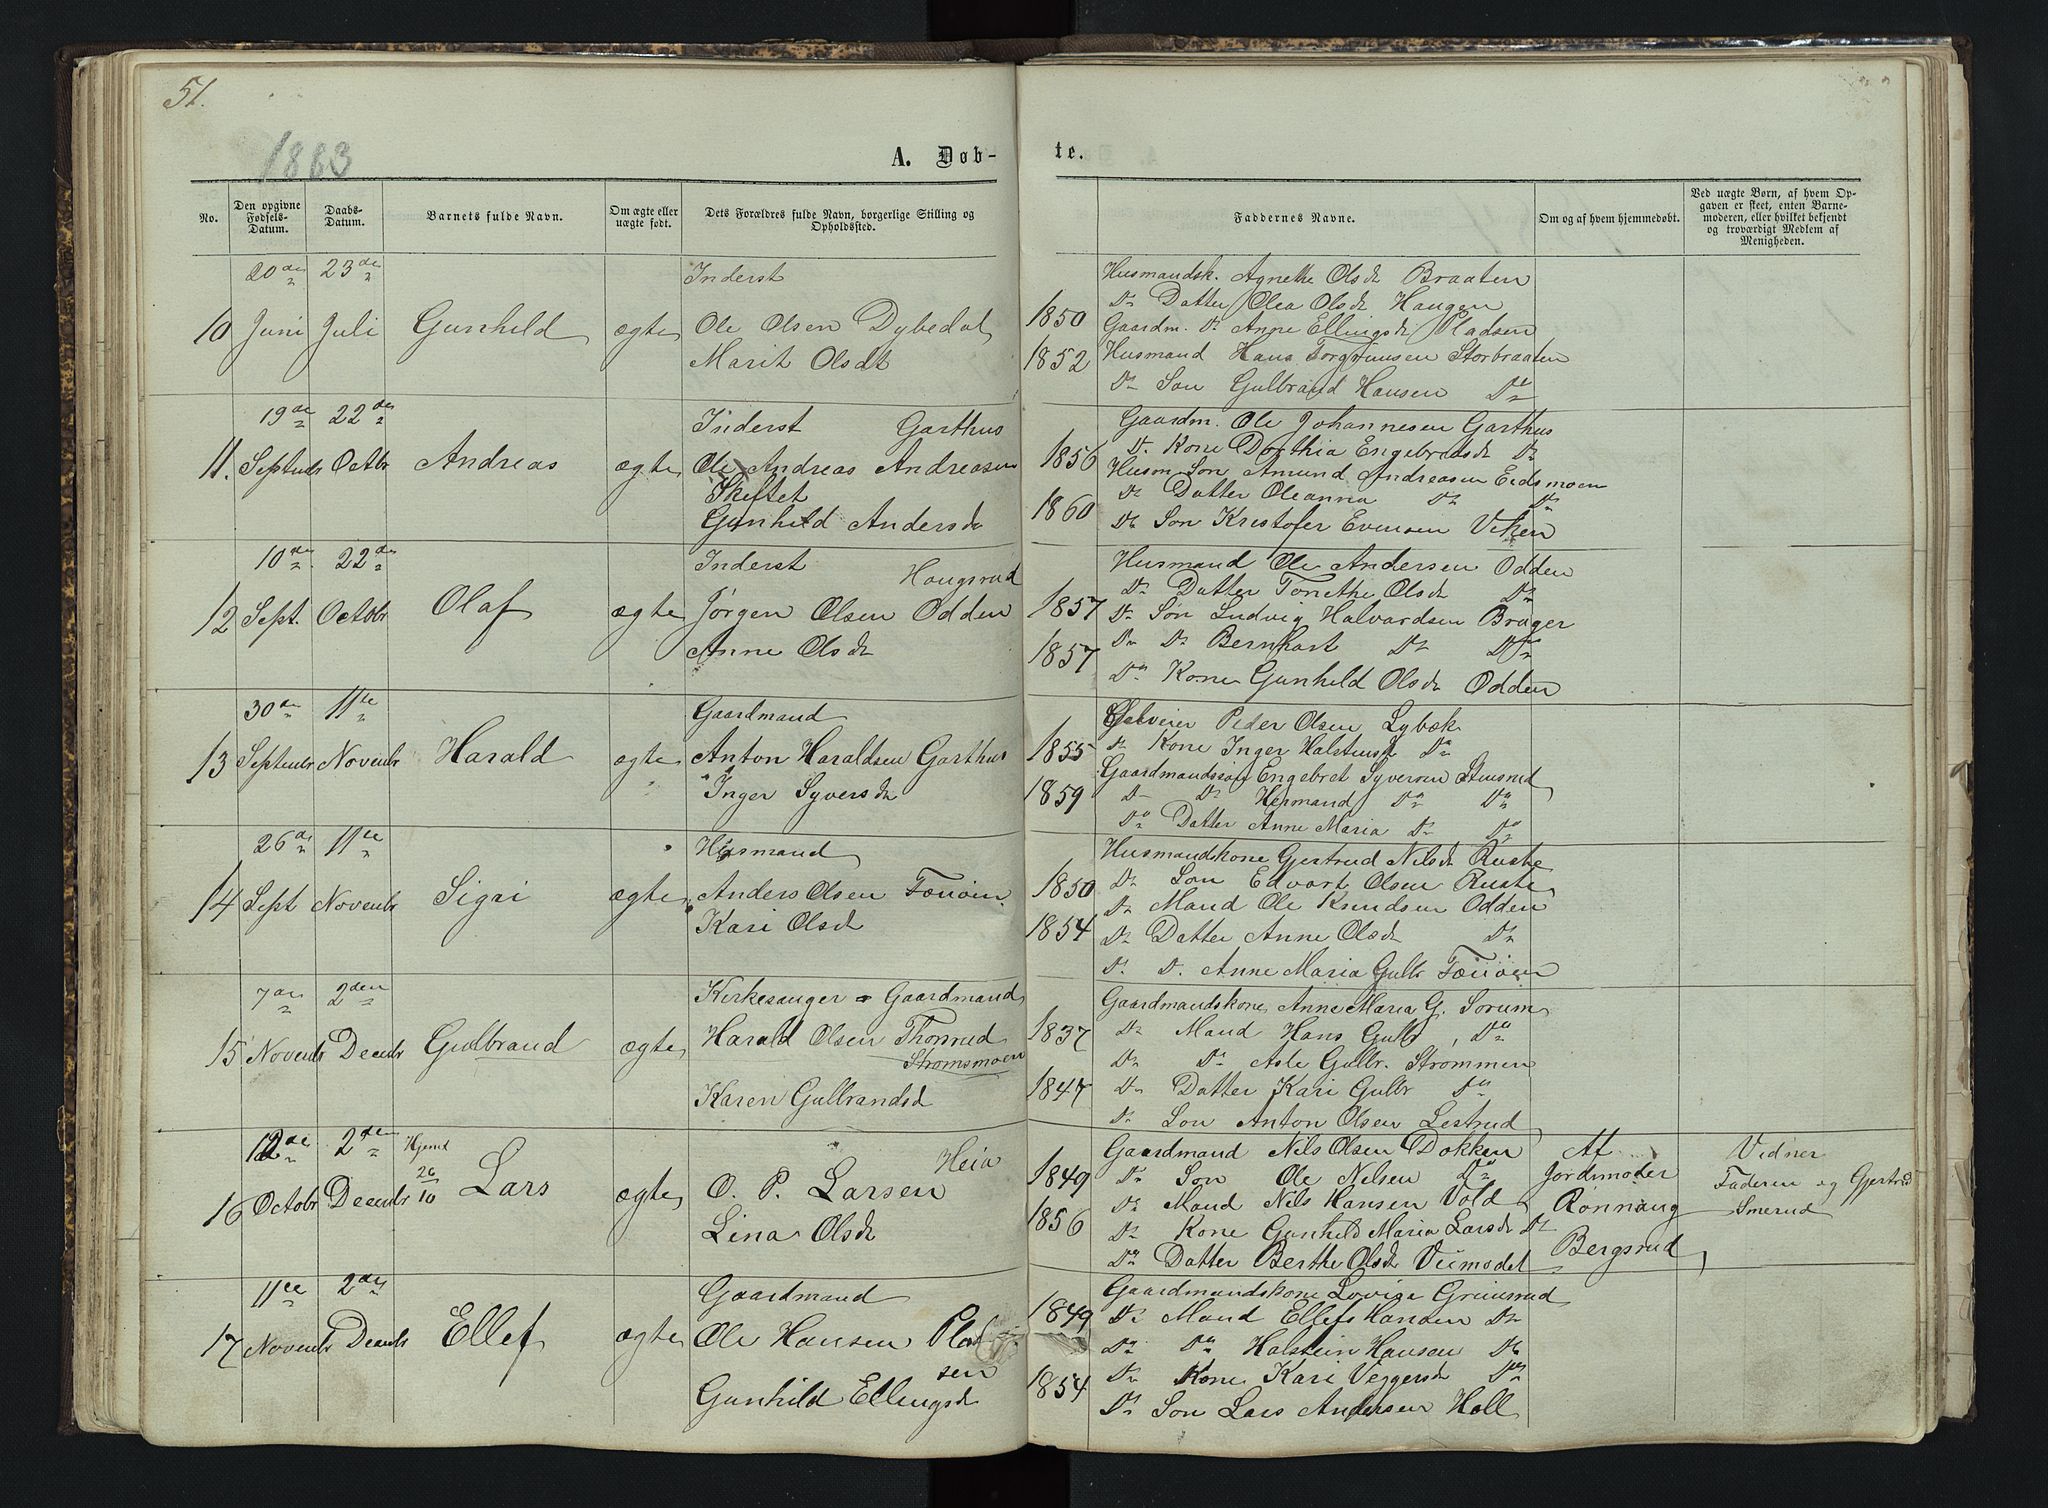 51.
1883
A. Døb-
te.
No.
Den opgivne Fødsels-Datum.
Daabs-Datum.
Barnets fulde Navn.
Om ægte eller uægte født.
Dets Forældres fulde Navn, borgerlige Stilling og Opholdssted.
Faddernes Navne.
Om og af hvem hjemmedøbt.
Ved uægte Børn, af hvem Opgaven er skeet, enten Barnemoderen, eller hvilket bekjendt og troværdigt Medlem af Menigheden.
20de 23de Inderst
10 Juni Juli Gunhild ægte Ole Olsen Dybedal
Marit Olsdt
1850
1852
Husmandsk. Agnethe Olsdt Braaten
Do Datter Olea Olsdt Haugen
Gaardm. Do Anne Ellingsdt Pladsen
Husmand Hans Torgrimsen Storbraaten
Do Søn Gulbrand Hansen Do
19de 22de Inderst Garthus
11. Septembr Octbr Andreas ægte Ole Andreas Andreasen
Skiftet
Gunhild Andersdt
1856
1860
Gaardm. Ole Johannesen Garthus
Do Kone Dorthia Engebretsdt Do
Husm. Søn Amund Andreasen Eidsmoen
Do Datter Oleanna Do Do
Do Søn Kristofer Evensen Viken
10de 22de Inderst Haugsrud
12 Sept. Octobr Olaf ægte Jørgen Olsen Odden
Anne Olsdt
1857
1857
Husmand Ole Andersen Odden
Do Datter Tonethe Olsdt Do
Do Søn Ludvig Halvardsen Brager
Do Do Bernhart Do Do
Do Kone Gunhild Olsdt Odden
30de 11te Gaardmand
13 Septembr Novembr Harald ægte Anton Haraldsen Garthus
Inger Syversdt
1855
1859
Selveier Peder Olsen Lybæk
Do Kone Inger Halstensdt Do
Gaardmandssøn Engebret Syversen Stensrud
Do Do Hermand Do Do
Do Datter Anne Maria Do Do
26de 11te Husmand
14 Sept Novembr Sigri ægte Anders Olsen
Kari Olsdt
1850
1854
Husmandskone Gjertrud Nilsdt Ruste
Do Søn Edvart Olsen Ruste
Do Mand Ole Knudsen Odden
Do Datter Anne Olsdt Do
Do D. Anne Maria Gulbr
7de 2den Kirkesanger Gaardmand
15 Novembr Decembr Gulbrand ægte Harald Olsen Thonrud
Strømsmoen
Karen Gulbrandsd
1837
1847
Gaardmandskone Anne Maria G. Sorum
Do Mand Hans Gulbr Do
Do Do Asle Gulbr. Strømmen
Do Datter Kari Gulbr Do
Do Søn Anton Olsen Lestrud
12de 2den Hjemd Heia
16 Octobr Decembr 26/10 Lars ægte O. P. Larsen
Lina Olsdt
1849
1856
Gaardmand Nils Olsen Dokken
Do Søn Ole Nilsen Do
Do Mand Nils Hansen Vold
Do Kone Gunhild Maria Larsdt Do
Do Datter Berthe Olsdt
Af
Jordsmoder
Rønnaug
Bergsrud
Vidner
Faderen og Gjertrud
Smerud
11te 2den Gaardmand
17 Novembr Decembr Ellef ægte Ole Hansen Plad
sen
Gunhild Ellingsdt
1849
1854
Gaardmandskone Lovise Grimsrud
Do Mand Ellef Hansen Do
Do Do Halstein Hansen Do
Do Kone Kari Veggersdt Do
Do Søn Lars Andersen Holl